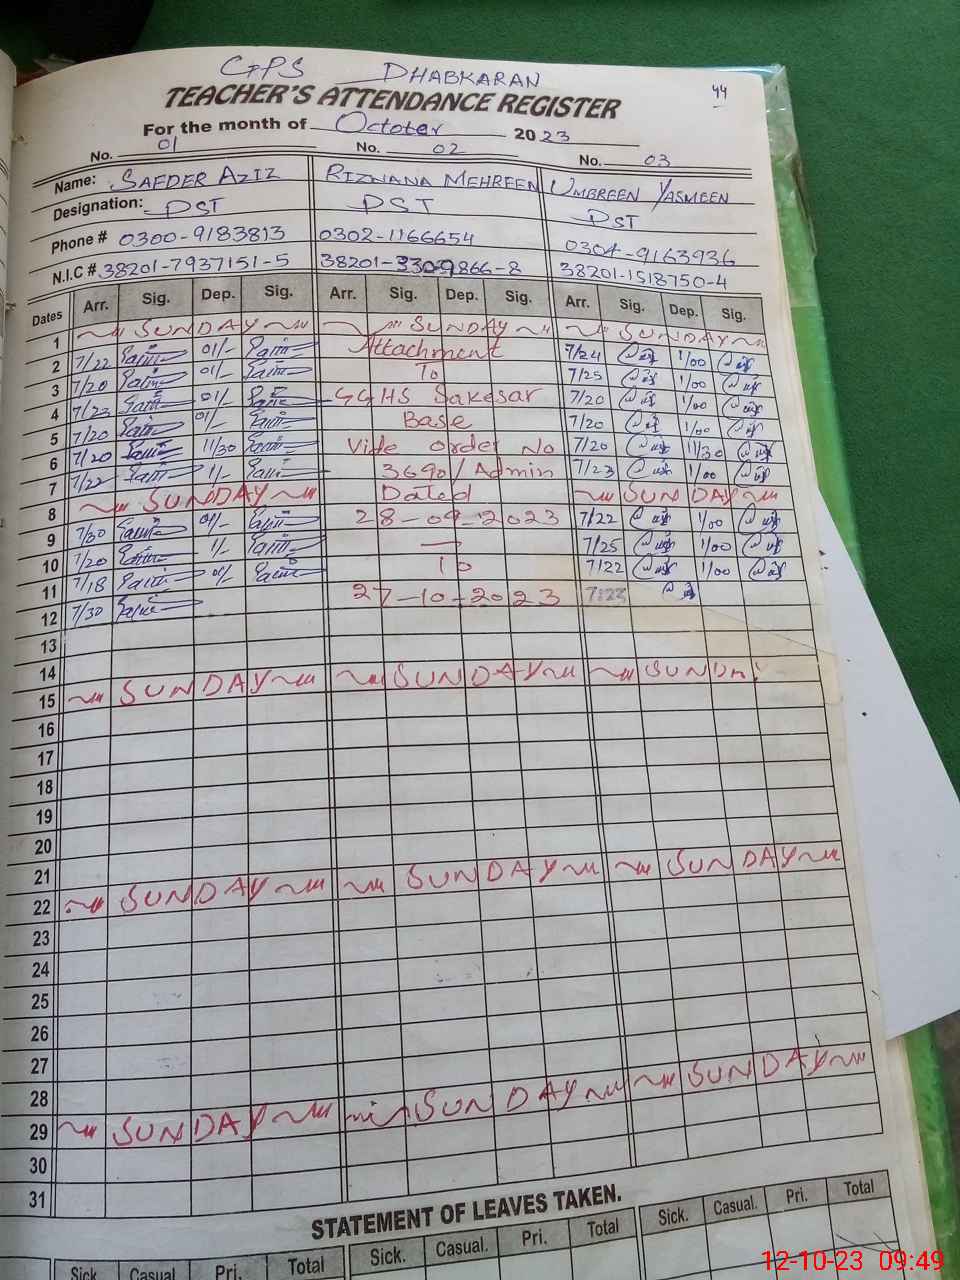 GPS DHABKARAN
44
TEACHER'S ATTENDANCE REGISTER
For the month of October 2023
No. 01 No. 02 No. 03
Name: SAFDER AZIZ RIZWANA MEHREEN UMBREEN YASMEEN
Designation: PST PST PST
Phone # 0300-9183813 0302-1166654 0304-9163936
N.I.C # 38201-7937151-5 38201-3309866-8 38201-1518750-4
Dates Arr. Sig. Dep. Sig. Arr. Sig. Dep. Sig. Arr. Sig. Dep. Sig.
1 SUNDAY SUNDAY SUNDAY
2 7/22 01/- Attachment 7/24 1/00
3 7/20 01/- To 7/25 1/00
4 7/23 01/- GGHS Sakesar 7/20 1/00
5 7/20 01/- Base 7/20 1/00
6 7/20 11/30 Vide order No 7/20 11/30
7 7/22 1/- 3690/Admin 7/23 1/00
8 SUNDAY Dated SUNDAY
9 7/30 01/- 28-09-2023 7/22 1/00
10 7/20 1/- — 7/25 1/00
11 7/18 01/- To 7/22 1/00
12 7/30 27-10-2023 7:23
13
14
15 SUNDAY SUNDAY SUNDAY
16
17
18
19
20
21
22 SUNDAY SUNDAY SUNDAY
23
24
25
26
27
28
29 SUNDAY SUNDAY SUNDAY
30
31
STATEMENT OF LEAVES TAKEN.
Sick Casual Pri. Total Sick. Casual. Pri. Total Sick. Casual. Pri. Total
12-10-23 09:49